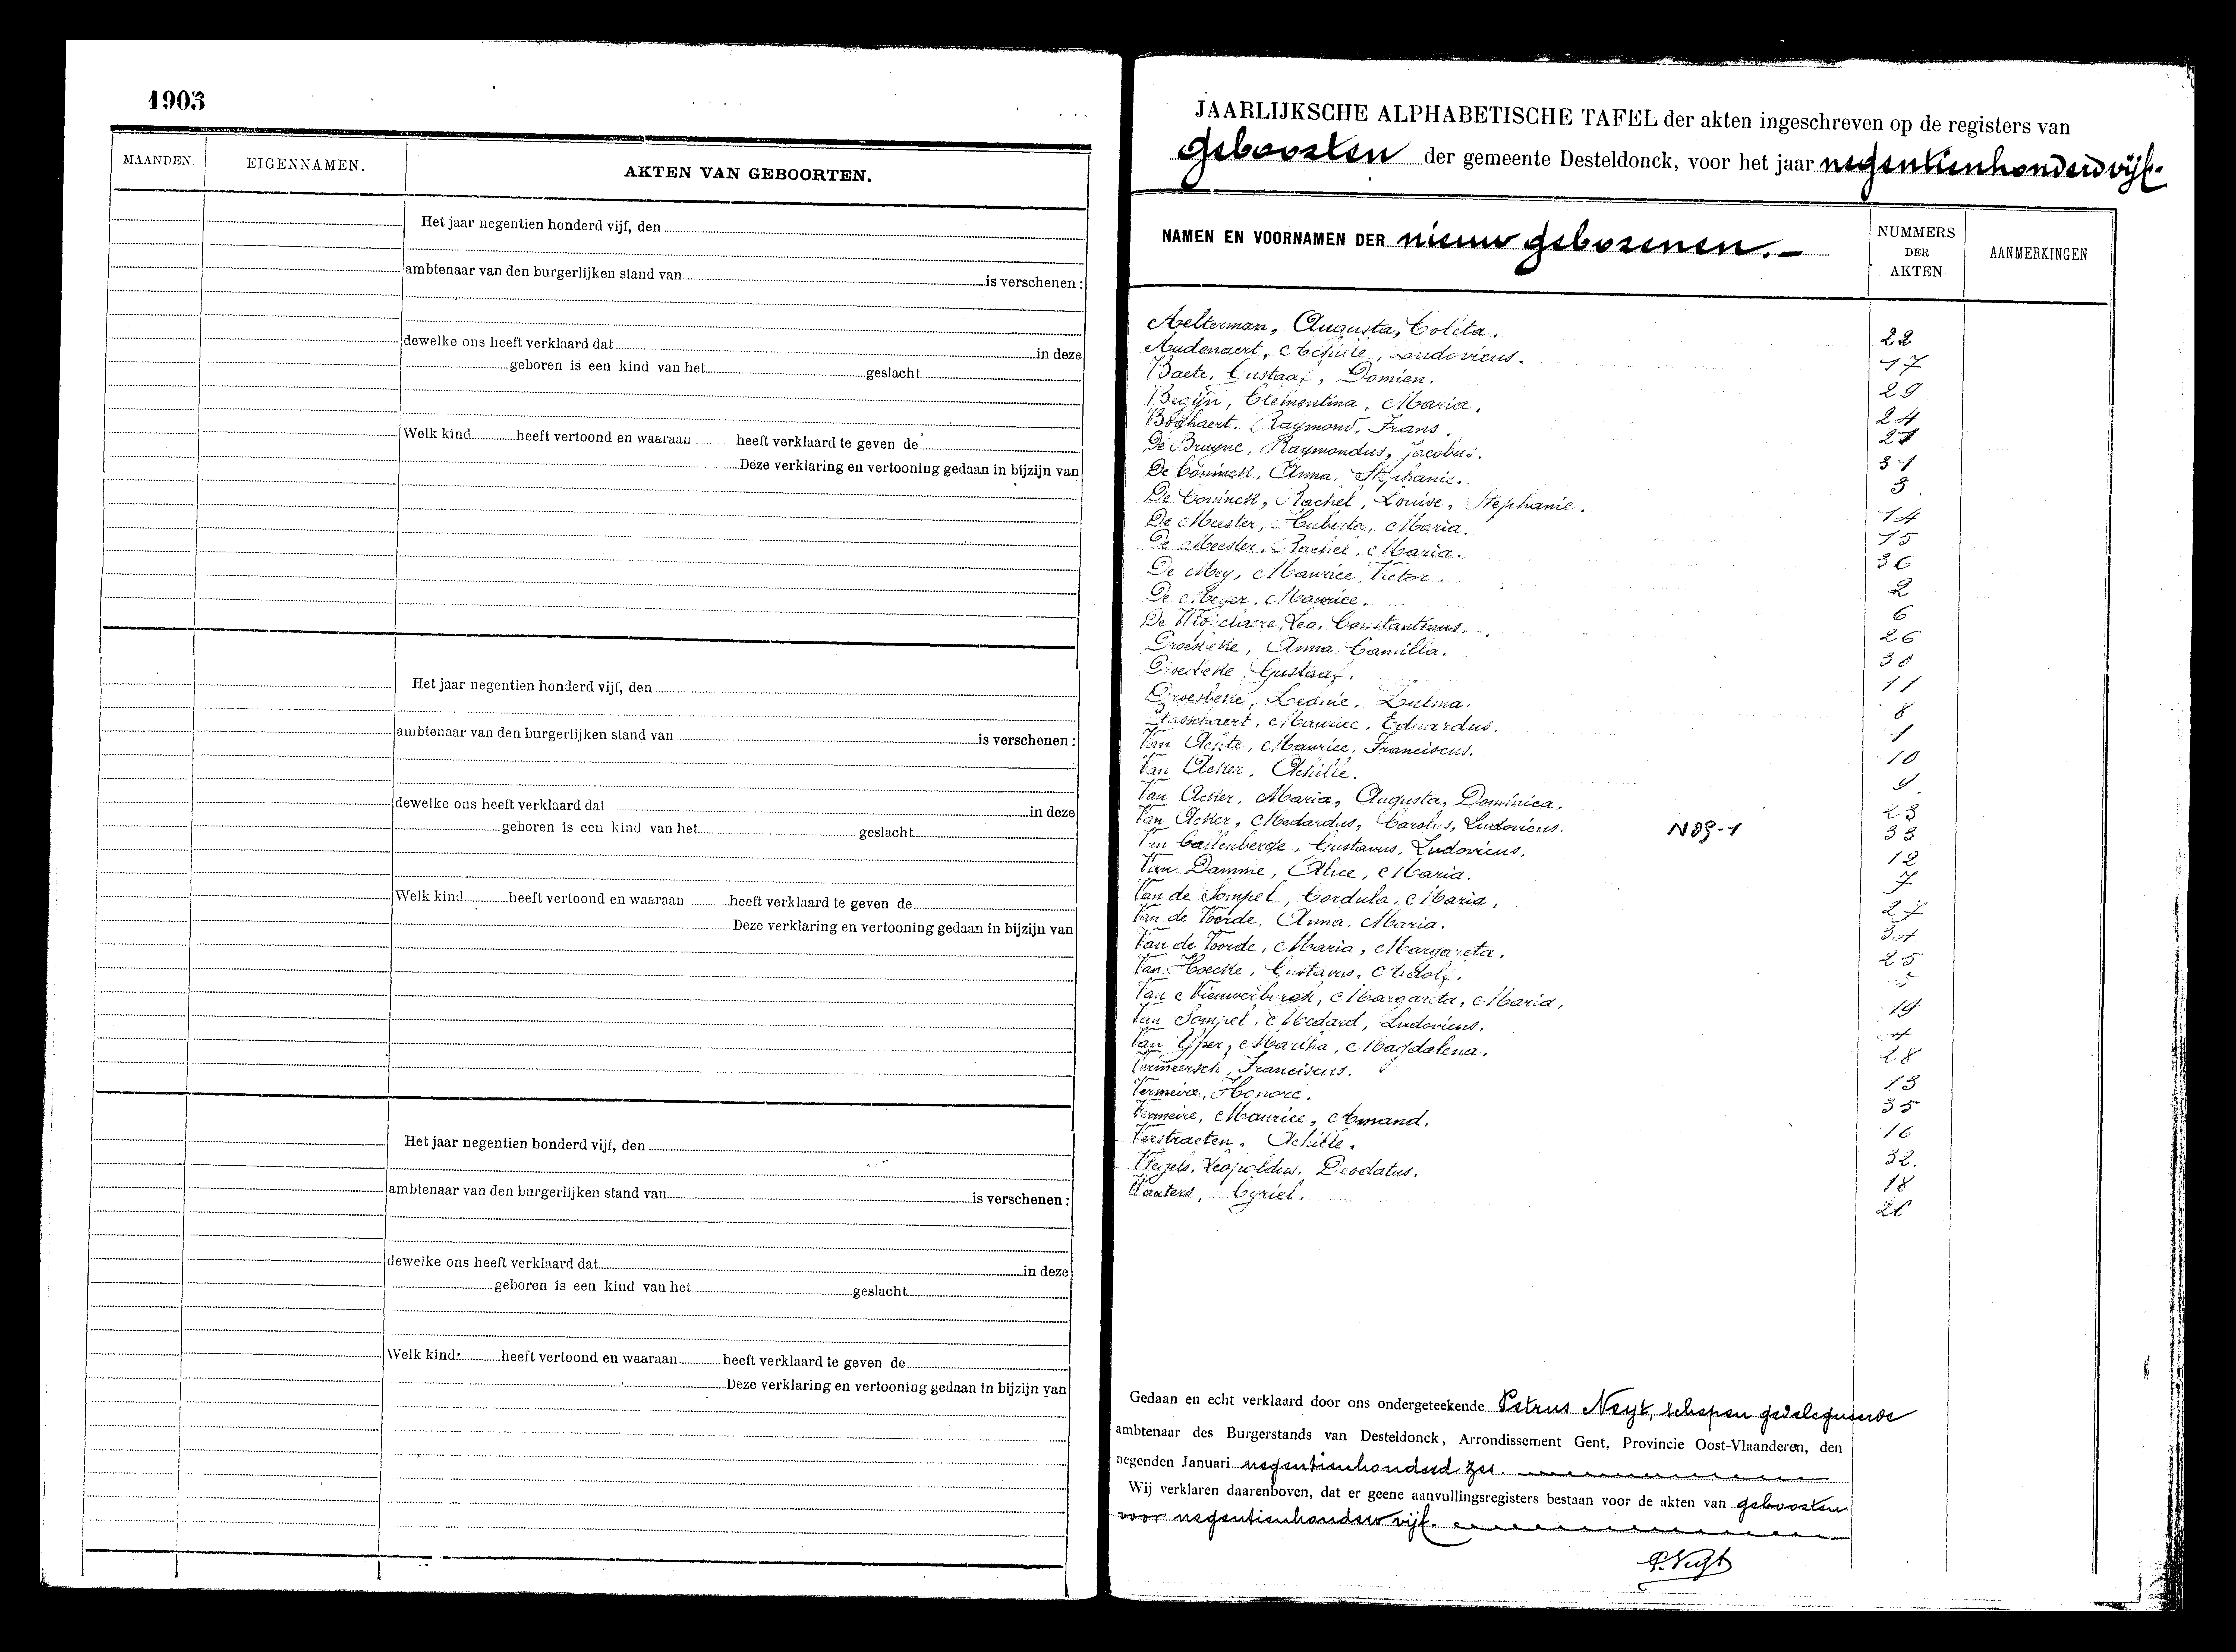 1905
MAANDEN.
EIGENNAMEN.
AKTEN VAN GEBOORTEN.
Het jaar negentien honderd vijf, den
ambtenaar van den burgerlijken stand van is verschenen :
dewelke ons heeft verklaard dat in deze
geboren is een kind van het geslacht
Welk kind heeft vertoond en waaraan heeft verklaard te geven de
Deze verklaring en vertooning gedaan in bijzijn van
Het jaar negentien honderd vijf, den
ambtenaar van den burgerlijken stand van is verschenen :
dewelke ons heeft verklaard dat in deze
geboren is een kind van het geslacht
Welk kind heeft vertoond en waaraan heeft verklaard te geven de
Deze verklaring en vertooning gedaan in bijzijn van
Het jaar negentien honderd vijf, den
ambtenaar van den burgerlijken stand van is verschenen :
dewelke ons heeft verklaard dat in deze
geboren is een kind van het geslacht
Welk kind heeft vertoond en waaraan heeft verklaard te geven de
Deze verklaring en vertooning gedaan in bijzijn van
JAARLIJKSCHE ALPHABETISCHE TAFEL der akten ingeschreven op de registers van
geboorten der gemeente Desteldonck, voor het jaar negentienhonderd vijf.
NAMEN EN VOORNAMEN DER nieuw geborenen.
NUMMERS DER AKTEN
AANMERKINGEN
Aelterman, Augusta, Coleta. 22
Audenaert, Achille, Ludovicus. 17
Baete, Gustaaf, Domien. 29
Begijn, Clementina, Maria. 24
Boghaert. Raymond, Frans. 21
De Bruyne, Raymondus, Jacobus. 31
De Coninck, Anna, Stephanie. 3
De Coninck, Rachel, Louise, Stephanie. 14
De Meester, Huberta, Maria. 15
De Meester, Rachel, Maria. 36
De Mey, Maurice, Victor. 2
De Meyer, Maurice. 6
De Leo, Constantinus. 26
Droesbeke, Anna, Camilla. 30
Droesbeke, Gustaaf. 11
Droesbeke, Leonie, Zulma. 8
Maurice, Eduardus. 1
Van Maurice, Franciscus. 10
Van Acker, Achille. 9
Van Acker, Maria, Augusta, Dominica. 23
Van Acker, Medardus, Carolus, Ludovicus. N09-1 33
Van Callenberge, Gustavus, Ludovicus. 12
Van Damme, Alice, Maria. 7
Van de Sompel, Cordula, Maria, 27
Van de Voorde, Anna, Maria. 34
Van de Voorde, Maria, Margareta. 25
Van Hoecke, Gustavus, Adolf. 5
Van Nieuwerburgh, Margareta, Maria. 19
Van Sompel, Medard, Ludovicus. 4
Van Yper, Martha, Magdalena. 28
Vermeersch, Franciscus. 13
Vermeire, Honoré. 35
Vermeire, Maurice, Amand. 16
Verstraeten, Achille. 32.
Leopoldus, Deodatus. 18
Wauters, Cyriel. 20
Gedaan en echt verklaard door ons ondergeteekende Petrus Neyt, schepen gedelegueerde
ambtenaar des Burgerstands van Desteldonck, Arrondissement Gent, Provincie Oost-Vlaanderen, den
negenden Januari negentienhonderd zes.
Wij verklaren daarenboven, dat er geene aanvullingsregisters bestaan voor de akten van geboorten
voor negentienhonderd vijf.
P. Neyt